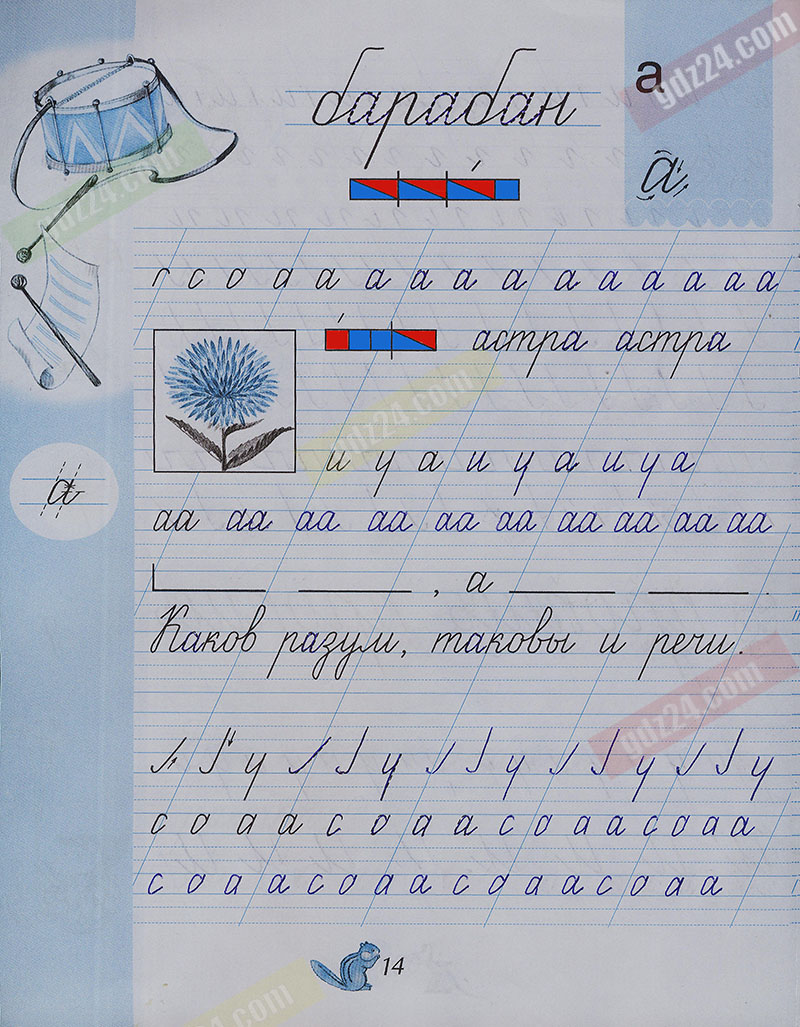 gdz24.com
барабан
а
а
gdz24.com
г с о а а а а а а а а а а а а
астра астра
gdz24.com
и у а и у а и у а
а
аа аа аа аа аа аа аа аа аа аа
, а .
Каков разум, таковы и речи.
gdz24.com
у у у у у
с о а а с о а а с о а а с о а а
с о а а с о а а с о а а с о а а
14